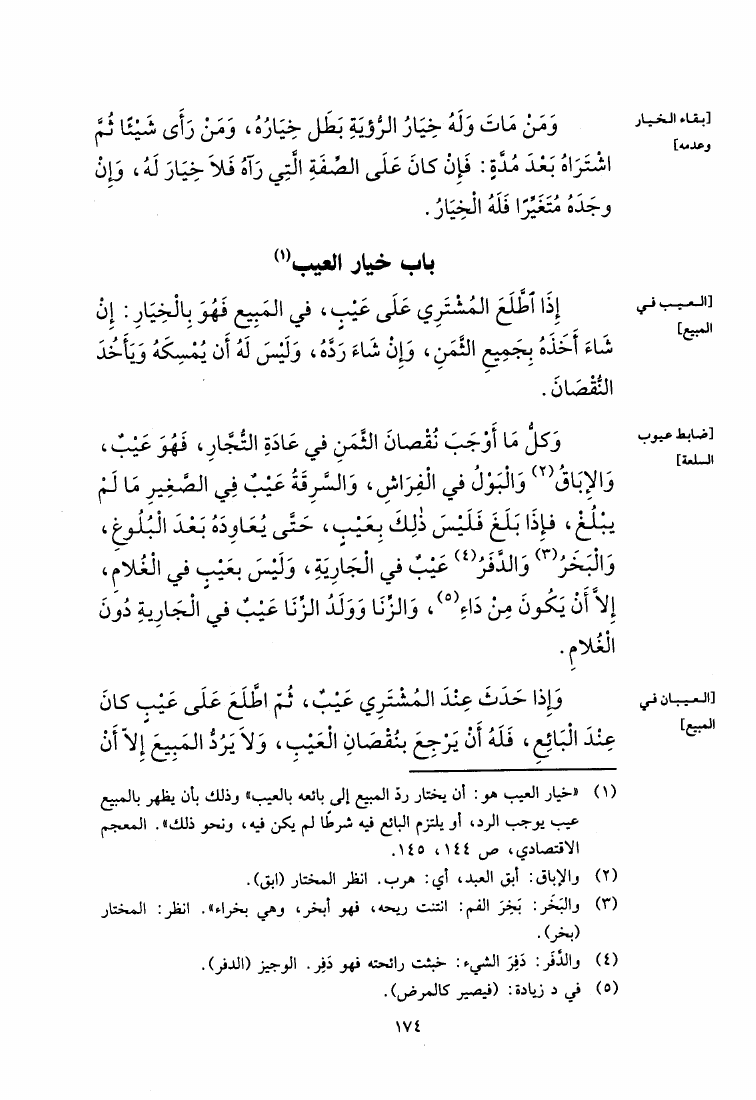 [بقاء الخيار
وعدمه]
وَمَنْ مَاتَ وَلَهُ خِيَارُ الرُّؤيَةِ بَطَل خِيَارُهُ، وَمَنْ رَأَى شَيْئًا ثُمَّ
اشْتَرَاهُ بَعْدَ مُدَّةٍ: فَإِنْ كانَ عَلَى الصِّفَةِ الَّتِي رَآهُ فَلاَ خِيَارَ لَهُ، وَإِنْ
وجَدَهُ مُتَغَيِّرًا فَلَهُ الْخِيَارُ.
باب خيار العيب(١)
[العيب في
المبيع]
إِذَا ٱطَّلَعَ المُشْتَرِي عَلَى عَيْبٍ، في المَبِيع فَهُوَ بِالْخِيَارِ: إِنْ
شَاءَ أَخَذَهُ بِجَمِيع الثَّمَنِ، وَإِنْ شَاءَ رَدَّهُ، وَلَيْسَ لَهُ أن يُمْسِكَهُ وَيَأْخُذَ
النُّقْصَانَ.
[ضابط عيوب
السلعة]
وَكلُّ مَا أَوْجَبَ نُقْصانَ الثَّمَنِ في عَادَةِ التُّجَّارِ، فَهُوَ عَيْبٌ،
وَالإِبَاقُ(٢) وَالْبَوْلُ في الْفِرَاشِ، وَالسَّرِقَةُ عَيْبٌ فِي الصَّغِيرِ مَا لَمْ
يبْلُغْ، فإِذَا بَلَغَ فَلَيْسَ ذٰلِكَ بِعَيْبٍ، حَتَّى يُعَاوِدَهُ بَعْدَ الْبُلُوغِ،
وَالْبَخَرُ(٣) وَالدَّفَرُ(٤) عَيْبٌ في الْجَارِيَةِ، وَلَيْسَ بعَيْبٍ في الْغُلامِ،
إِلاَّ أَنْ يَكُونَ مِنْ دَاءٍ(٥)، وَالزِّنَا وَوَلَدُ الزِّنَا عَيْبٌ في الْجَارِيةِ دُونَ
الْغُلامِ.
[العيبان في
المبيع]
وَإِذا حَدَثَ عِنْدَ المُشْتَرِي عَيْبٌ، ثُمّ اطَّلَعَ عَلَى عَيْبٍ كانَ
عِنْدَ الْبَائِعِ، فَلَهُ أَنْ يَرْجِعَ بِنُقْصَانِ الْعَيْبِ، وَلاَ يَرُدُّ المَبِيعَ إِلاّ أَنْ
(١) «خيار العيب هو: أن يختار ردّ المبيع إلى بائعه بالعيب» وذلك بأن يظهر بالمبيع
عيب يوجب الرد، أو يلتزم البائع فيه شرطًا لم يكن فيه، ونحو ذلك». المعجم
الاقتصادي، ص ١٤٤، ١٤٥.
(٢) والإباق: أبق العبد، أي: هرب. انظر المختار (ابق).
(٣) والبَخَر: بَخِرَ الفم: انتنت ريحه، فهو أبخر، وهي بخراء». انظر: المختار
(بخر).
(٤) والدَّفَر: دَفِرَ الشيء: خبثت رائحته فهو دَفِر. الوجيز (الدفر).
(٥) في د زيادة: (فيصير كالمرض).
١٧٤